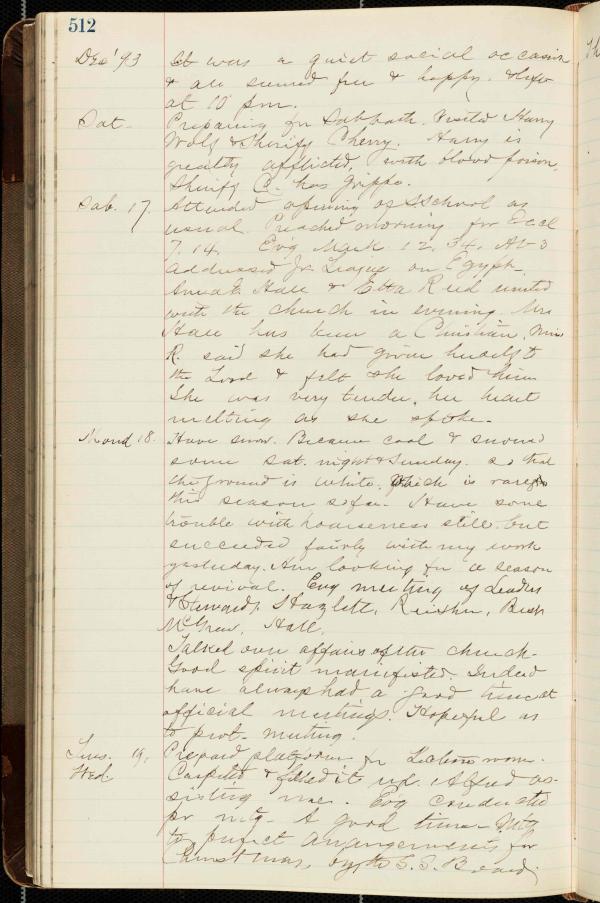 512
Dec' 93 It was a quiet social occasion
& all seemed free & happy.
at 10 p.m.
Sat. Preparing for Sabbath. Visited Harry
Wolf & Sheriff Cherry. Harry is
greatly afflicted, with blood poison,
Sheriff C. has grippe.
Sab. 17. Attended opening of S School as
usual. Preached morning fr Eccl
7.14. Evg Mark. 12.34. At 3
addressed Jr. League on Egypt.
Hall & Etta Reed united
with the church in evening. Mrs
Hall has been a Christian, Miss
R. said she had given herself to
the Lord & felt she loved him
She was very tender, her heart
melting as she spoke.
Mond 18. Have snow. Became cool & snowed
some sat. night & Sunday. so that
the ground is white. Which is rare
this season so far. Have some
trouble with hoarseness still. but
succeeded fairly with my work
yesterday. Am looking for a season
of revival. Evg meeting of Leaders
& Stewards, Hazlett, Bush
McGrew, Hall,
Talked over affairs of the church.
Good spirit manifested. Indeed
have always had a good time at
official meetings. Hopeful as
to prot. meeting.
Tues. 19. Prepared platform for Lecture room.
Wed. Carpeted & fixed it up. Alfred as-
sisting me. Evg conducted
pr mtg. A good time. Mtg
to perfect arrangements for
Christmas, by the S.S. Board.